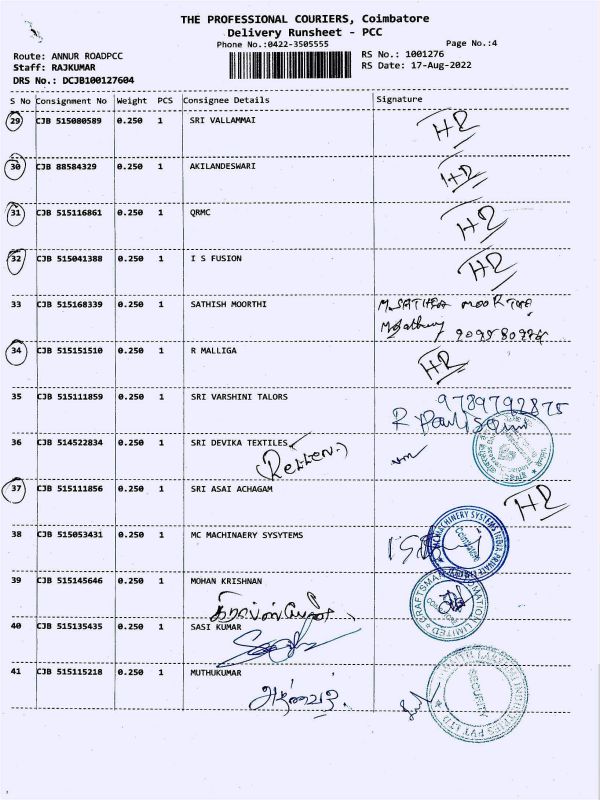 THE PROFESSIONAL COURIERS, Coimbatore
Delivery Runsheet - PCC
Phone No.:0422-3505555
Page No.:4
Route: ANNUR ROADPCC
RS No.: 1001276
Staff: RAJKUMAR
RS Date: 17-Aug-2022
DRS No.: DCJB100127604
S No Consignment No Weight PCS Consignee Details Signature
29 CJB 515080589 0.250 1 SRI VALLAMMAI HR
30 CJB 88584329 0.250 1 AKILANDESWARI HR
31 CJB 515116861 0.250 1 QRMC HR
32 CJB 515041388 0.250 1 I S FUSION HR
33 CJB 515168339 0.250 1 SATHISH MOORTHI
34 CJB 515151510 0.250 1 R MALLIGA HR
35 CJB 515111859 0.250 1 SRI VARSHINI TALORS 9789792875
36 CJB 514522834 0.250 1 SRI DEVIKA TEXTILES
37 CJB 515111856 0.250 1 SRI ASAI ACHAGAM HR
38 CJB 515053431 0.250 1 MC MACHINAERY SYSYTEMS
39 CJB 515145646 0.250 1 MOHAN KRISHNAN
40 CJB 515135435 0.250 1 SASI KUMAR
41 CJB 515115218 0.250 1 MUTHUKUMAR
SECURITY